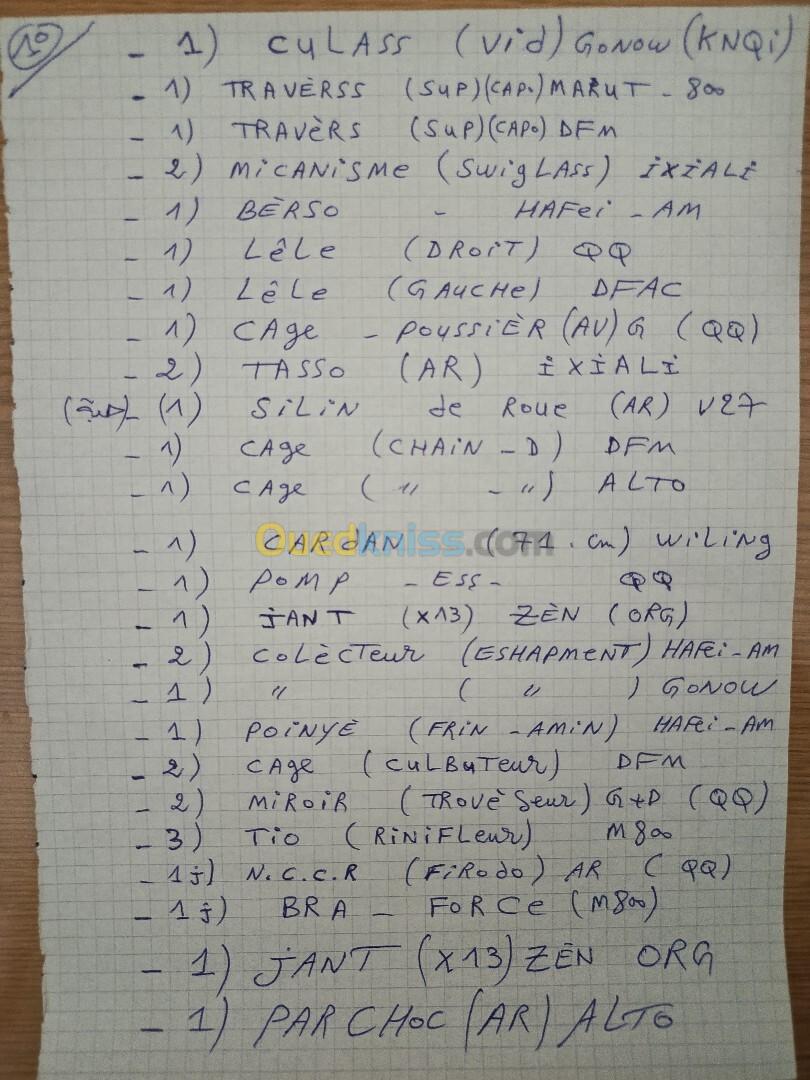 1°
- 1) CULASS (Vid) GONOW (KNQi)
- 1) TRAVÈRSS (SUP) (CAPO) MARUT - 800
- 1) TRAVÈRS (SUP) (CAPO) DFM
- 2) MiCANiSME (SwigLASS) iXiALi
- 1) BÈRSO - HAFei - AM
- 1) LÊLe (DROiT) QQ
- 1) LÊLe (GAUCHe) DFAC
- 1) CAge - POUSSiÈR (AV) G (QQ)
- 2) TASSO (AR) iXiALi
- (1) SiLiN de Roue (AR) V27
- 1) CAge (CHAiN - D) DFM
- 1) CAge ( " - ") ALTO
- 1) CARdAN (71.cm) WiLiNg
Ouedkniss.com
- 1) POMP - ESS - QQ
- 1) jANT (X13) ZÈN (ORG)
- 2) COLÈCTeur (ESHAPMENT) HAFei - AM
- 1) " ( " ) GONOW
- 1) POiNYÈ (FRiN - AMiN) HAFei - AM
- 2) CAge (CULBuTeur) DFM
- 2) MiROiR (TROVÈSeur) G+D (QQ)
- 3) Tio (RiNiFLeur) M800
- 1j) N.C.C.R (FiRodo) AR (QQ)
- 1j) BRA - FORCe (M800)
- 1) jANT (X13) ZÈN ORG
- 1) PARCHOC (AR) ALTO